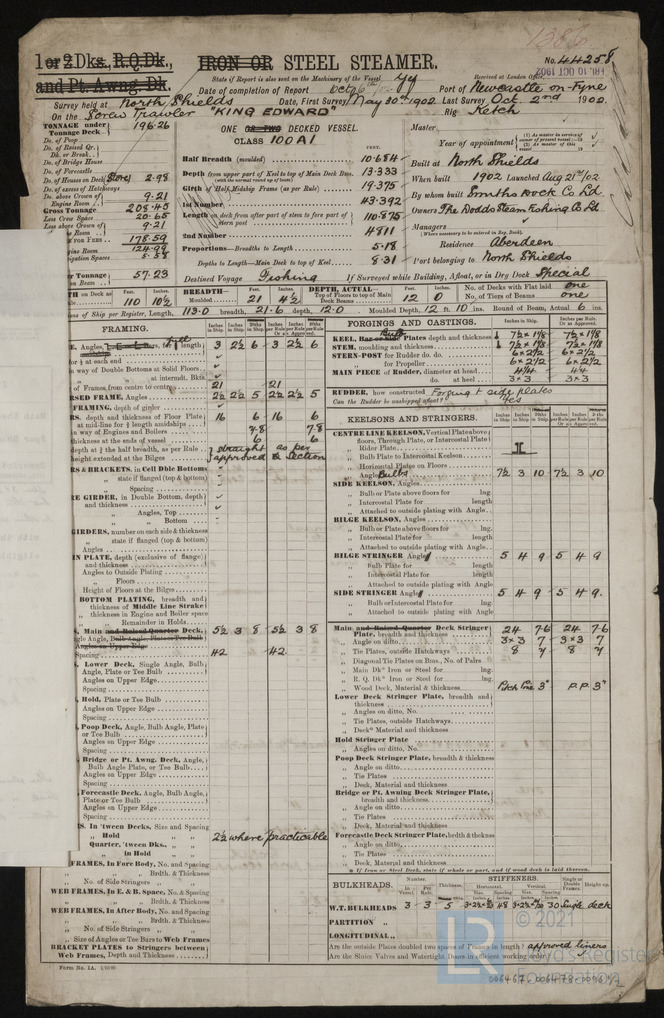 1 or 2 Dks., R.Q.Dk.,
and Pt. Awng. Dk.
IRON OR STEEL STEAMER.
No. 44258
State if Report is also sent on the Machinery of the Vessel Yes
Received at London Office
FRI. 10 OCT 1902
Date of completion of Report Oct 6th /02
Port of Newcastle on-Tyne
Survey held at North Shields
Date, First Survey May 30th 1902
Last Survey Oct. 2nd 1902.
On the Screw Trawler "KING EDWARD"
Rig Ketch
TONNAGE under Tonnage Deck 196.26
Do. of Poop
Do. of Raised Qr. Dk. or Break
Do. of Bridge House
Do. of Forecastle
Do. of Houses on Deck (Store) 2.98
Do. of excess of Hatchways
Do. above Crown of Engine Room 9.21
Gross Tonnage 208.45
Less Crew Space 20.65
Less above Crown of 9.21
178.59
124.99
5.58
57.23
ONE OR TWO DECKED VESSEL.
CLASS 100A1
FEET.
Half Breadth (moulded) 10.684
Depth from upper part of Keel to top of Main Deck Bms. 13.333
Girth of Half Midship Frame (as per Rule) 19.375
1st Number 43.392
Length on deck from after part of stem to fore part of stern post 110.875
2nd Number 4811
Proportions—Breadths to Length 5.18
Depths to Length—Main Deck to top of Keel 8.31
Destined Voyage Fishing
Master
Year of appointment
Built at North Shields
When built 1902 Launched Aug 21st/02
By whom built Smiths Dock Co Ld
Owners The Dodds Steam Fishing Co Ld
Managers
(Where necessary to be entered in Reg. Book).
Residence Aberdeen
Port belonging to North Shields
If Surveyed while Building, Afloat, or in Dry Dock Special
110 10½
BREADTH— Moulded 21 4½
DEPTH, ACTUAL— Top of Floors to top of Main Deck Beams 12 0
No. of Decks with Flat laid one
No. of Tiers of Beams one
ns of Ship per Register, Length, 113.0 breadth, 21.6 depth, 12.0 Moulded Depth, 12 ft. 10 ins. Round of Beam, Actual 6 ins.
FRAMING.
3 2½ 6 3 2½ 6
of Frames, from centre to centre 21 21
RSED FRAME, Angles 2½ 2½ 5 2½ 2½ 5
FRAMING, depth of girder
depth and thickness of Floor Plate at mid-line for ½ length amidships 16 6 16 6
in way of Engines and Boilers 7.8 7.8
thickness at the ends of vessel 6 6
depth at ¾ the half breadth, as per Rule straight as per
height extended at the Bilges approved & Section
RS & BRACKETS, in Cell Dble Bottoms
state if flanged (top & bottom)
Spacing
RE GIRDER, in Double Bottom, depth and thickness
Angles, Top
Bottom
GIRDERS, number on each side & thickness
state if flanged (top & bottom)
Angles
IN PLATE, depth (exclusive of flange) and thickness
Angles to Outside Plating
Floors
Height of Floors at the Bilges
BOTTOM PLATING, breadth and thickness of Middle Line Strake
thickness in Engine and Boiler space
Remainder in Holds
Main and Raised Quarter Deck, 5½ 3 8 5½ 3 8
Spacing 42 42
Lower Deck, Single Angle, Bulb Angle, Plate or Tee Bulb
Angles on Upper Edge
Spacing
Hold, Plate or Tee Bulb
Angles on Upper Edge
Spacing
Poop Deck, Angle, Bulb Angle, Plate or Tee Bulb
Angles on Upper Edge
Spacing
Bridge or Pt. Awng. Deck, Angle, Bulb Angle Plate, or Tee Bulb
Angles on Upper Edge
Spacing
Forecastle Deck, Angle, Bulb Angle, Plate or Tee Bulb
Angles on Upper Edge
Spacing
S. In 'tween Decks, Size and Spacing
Hold 2½ where practicable
Quarter, 'tween Dks.,
in Hold
FRAMES, In Fore Body, No. and Spacing
Brdth. & Thickness
No. of Side Stringers
WEB FRAMES, In E. & B. Space, No. & Spacing
Brdth. & Thickness
WEB FRAMES, In After Body, No. and Spacing
Brdth. & Thickness
No. of Side Stringers
Size of Angles or Tee Bars to Web Frames
BRACKET PLATES to Stringers between Web Frames, Depth and Thickness
Form No. 1A.
FORGINGS AND CASTINGS.
KEEL, Bar or Side Plates depth and thickness 7½ × 1⅛ 7½ × 1⅛
STEM, moulding and thickness 7½ × 1⅛ 7½ × 1⅛
STERN-POST for Rudder do. do. 6×2½ 6×2½
for Propeller 6×2½ 6×2½
MAIN PIECE of Rudder, diameter at head 4¼ 4¼
do. at heel 3×3 3×3
RUDDER, how constructed Forging & side plates
Can the Rudder be unshipped afloat? Yes
KEELSONS AND STRINGERS.
CENTRE LINE KEELSON, Vertical Plate above floors, Through Plate, or Intercostal Plate
Rider Plate
Bulb Plate to Intercostal Keelson
Horizontal Plates on Floors
Angles Bulbs 7½ 3 10 7½ 3 10
SIDE KEELSON, Angles
Bulb or Plate above floors for lng.
Intercostal Plate for length
Attached to outside plating with Angle
BILGE KEELSON, Angles
Bulb or Plate above floors for lng.
Intercostal Plate for length
Attached to outside plating with Angle
BILGE STRINGER Angles 5 4 9 5 4 9
Bulb Plate for length
Intercostal Plate for length
Attached to outside plating with Angle
SIDE STRINGER Angles 5 4 9 5 4 9
Bulb or Intercostal Plate for lng.
Attached to outside plating with Angle
Main and Raised Quarter Deck Stringer Plate, breadth and thickness 24 7.6 24 7.6
Angle on ditto 3×3 7 3×3 7
Tie Plates, outside Hatchways 8 7 8 7
Diagonal Tie Plates on Bms., No. of Pairs
Main Dk* Iron or Steel for lng.
R. Q. Dk* Iron or Steel for lng.
Wood Deck, Material & thickness Pitch Pine 3" P.P. 3"
Lower Deck Stringer Plate, breadth and thickness
Angles on ditto, No.
Tie Plates, outside Hatchways
Deck* Material and thickness
Hold Stringer Plate
Angles on ditto, No.
Poop Deck Stringer Plate, breadth & thickness
Angle on ditto
Tie Plates
Deck, Material and thickness
Bridge or Pt. Awning Deck Stringer Plate, breadth and thickness
Angle on ditto
Tie Plates
Deck, Material and thickness
Forecastle Deck Stringer Plate, brdth & thcknss
Angle on ditto
Tie Plates
Deck, Material and thickness
* If Iron or Steel deck, state if whole or part, and if wood deck is laid thereon.
BULKHEADS.
Number.
Thickness.
STIFFENERS.
Horizontal.
Vertical.
Single or Double Frames.
Height up.
W.T. BULKHEADS 3 3 5 48 30 Single deck
PARTITION
LONGITUDINAL
Are the outside Plates doubled two spaces of Frames in length? approved liners
Are the Sluice Valves and Watertight Doors in efficient working order?
© 2021
LR
Lloyd's Register
Foundation
006467-006478-0096 1/2